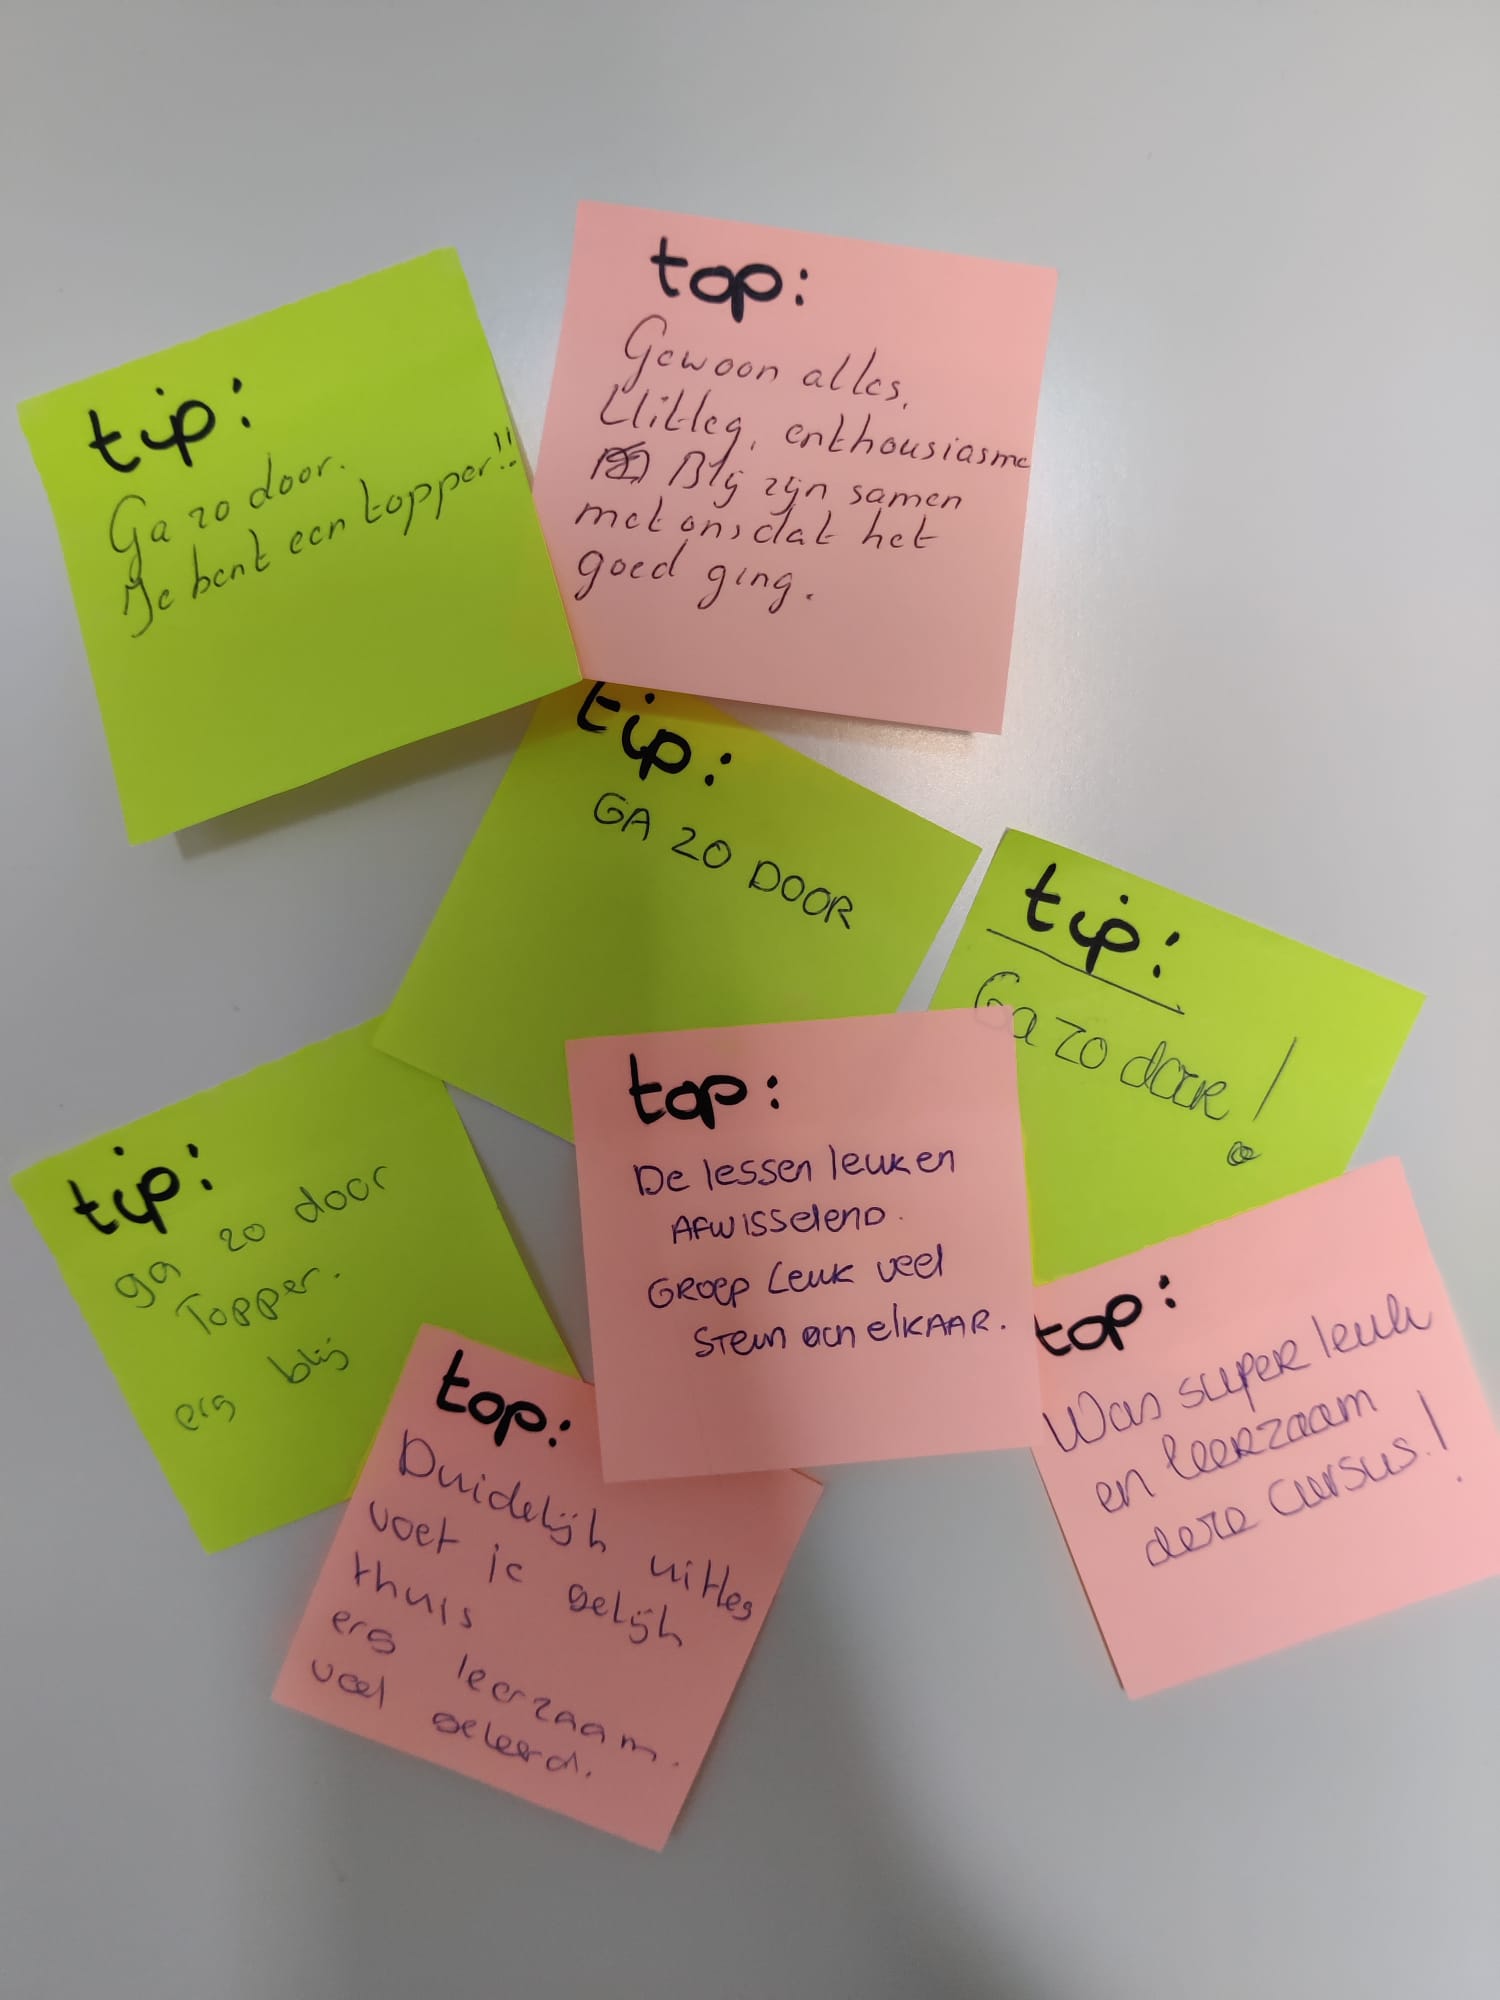 tip:
Ga zo door.
Je bent een topper!!
top:
Gewoon alles.
Uitleg, enthousiasme
Blij zijn samen
met ons dat het
goed ging.
tip:
GA ZO DOOR
tip:
Ga zo door!
tip:
ga zo door
Topper.
erg blij
top:
De lessen leuk en
AFWISSELEND.
GROEP Leuk veel
STEUN aan elKAAR.
top:
Was super leuk
en leerzaam
deze cursus!
top:
Duidelijk uitleg
voet je gelijk
thuis
erg leerzaam.
veel geleerd.